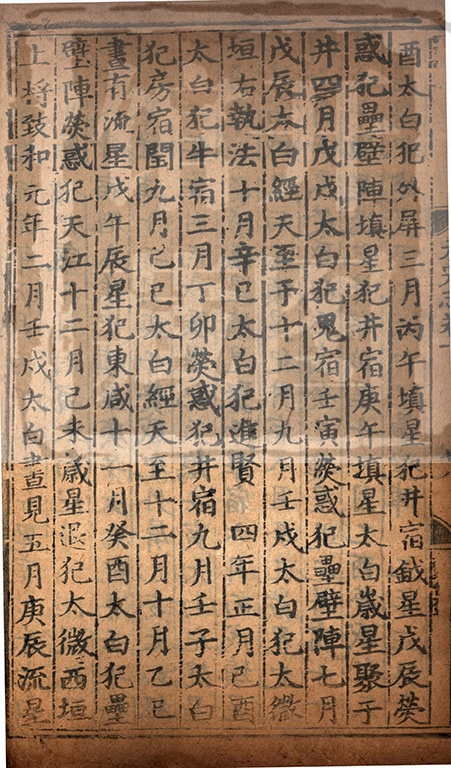 酉太白犯外屏三月丙午填星犯井宿鉞星戊辰熒
惑犯壘壁陣填星犯井宿庚午填星太白歲星聚于
井四月戊戌太白犯鬼宿壬寅熒惑犯壘壁陣七月
戊辰太白經天至于十二月九月壬戌太白犯太微
垣右執法十月辛巳太白犯進賢 四年正月己酉
太白犯牛宿三月丁卯熒惑犯井宿九月壬子太白
犯房宿閏九月己巳太白經天至十二月十月乙巳
晝有流星戊午辰星犯東咸十一月癸酉太白犯壘
壁陣熒惑犯天江十二月己未歲星退犯太微西垣
上将致和元年二月壬戌太白晝見五月庚辰流星